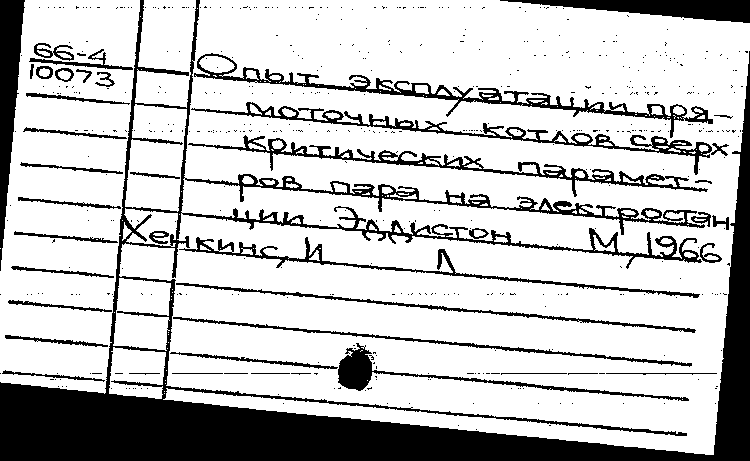 66-4
10073
Опыт эксплуатации пря-
моточных котлов сверх-
критических парамет-
ров пара на электростан-
ции Эддистон. М, 1966
Хенкинс, И Л